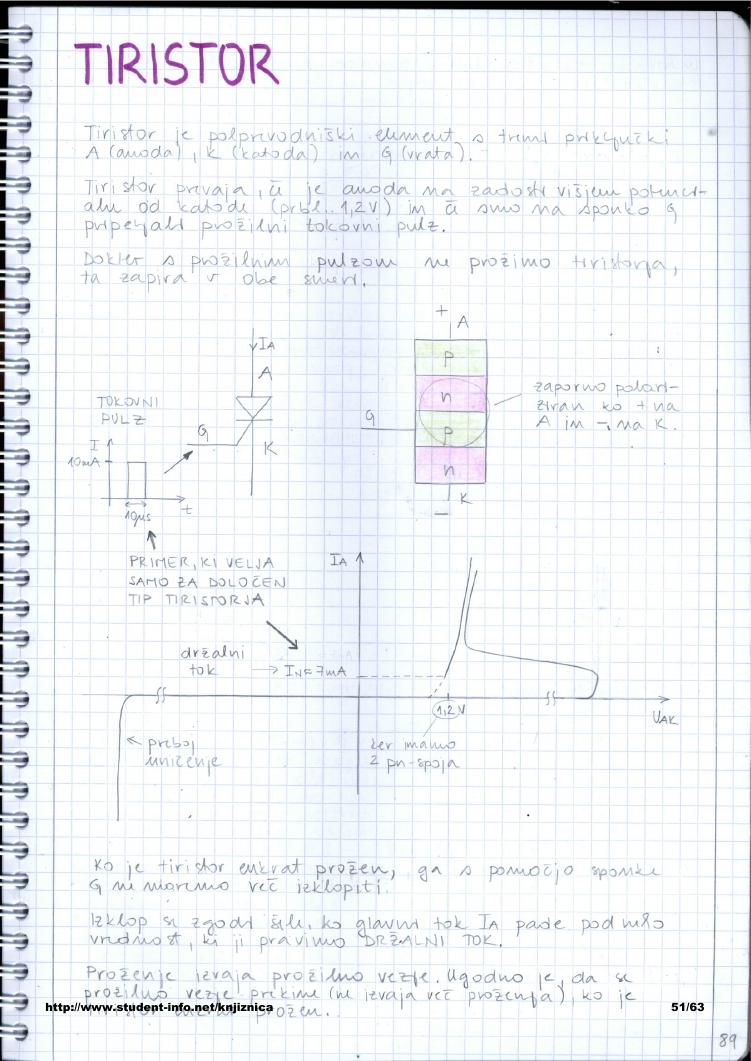 TIRISTOR
Tiristor je polprevodniški element s tremi priključki
A (anoda), K (katoda) in G (vrata).
Tiristor prevaja, če je anoda na zadosti višjem potenci-
alu od katode (pribl. 1,2V) in če smo na sponko G
pripeljali prožilni tokovni pulz.
Dokler s prožilnim pulzom ne prožimo tiristorja,
ta zapira v obe smeri.
+
A
IA
A
P
n
G
P
n
K
−
zaporno polari-
ziran ko + na
A in − na K.
TOKOVNI
PULZ
G
K
I
10mA
10µs
t
PRIMER, KI VELJA
SAMO ZA DOLOČEN
TIP TIRISTORJA
IA
držalni
tok → IN≈7mA
1,2V
UAK
← preboj
uničenje
ker imamo
2 pn-spoja
Ko je tiristor enkrat prožen, ga s pomočjo sponke
G ne moremo več izklopiti.
Izklop se zgodi šele, ko glavni tok IA pade pod neko
vrednost, ki ji pravimo DRŽALNI TOK.
Proženje izvaja prožilno vezje. Ugodno je, da se
prožilno vezje prekine (ne izvaja več proženja), ko je
prožen.
http://www.student-info.net/knjiznica
51/63
89